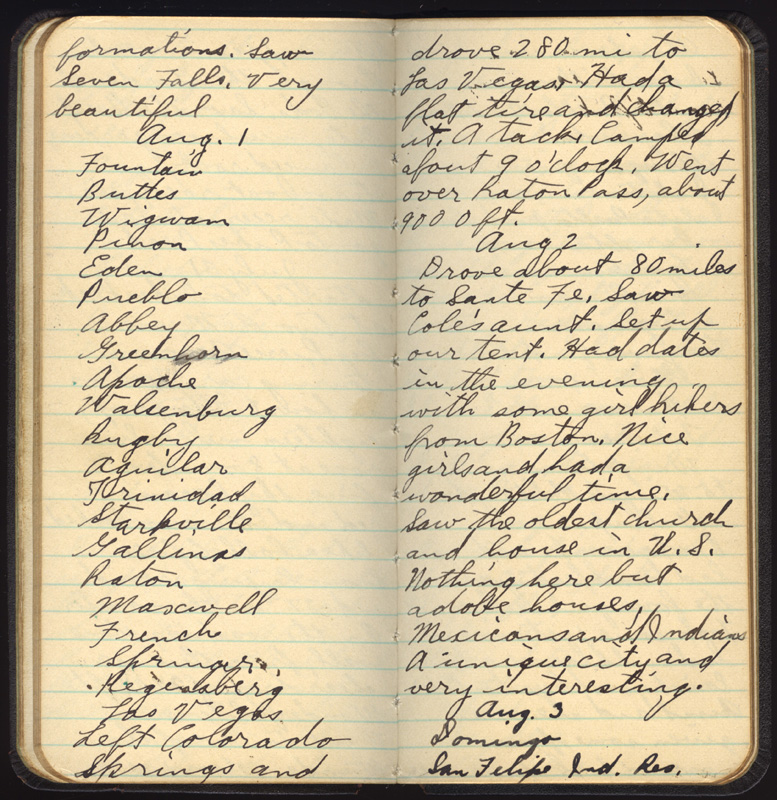 formations. Saw
Seven Falls. Very
beautiful
Aug. 1
Fountain
Buttes
Wigwam
Pinon
Eden
Pueblo
Abbey
Greenhorn
Apache
Walsenburg
Rugby
Aguilar
Trinidad
Starkville
Gallinas
Raton
Maxwell
French
Springer
Regensberg
Las Vegas
Left Colorado
Springs and
drove 280 mi to
Las Vegas. Had a
flat tire and changed
it. A tack. Camped
about 9 o'clock. Went
over Raton Pass, about
9000 ft.
Aug 2
Drove about 80 miles
to Sante Fe. Saw
Cole's aunt. Set up
our tent. Had dates
in the evening
with some girl hikers
from Boston. Nice
girls and had a
wonderful time.
Saw the oldest church
and house in U.S.
Nothing here but
adobe houses,
Mexicans and Indians
A unique city and
very interesting.
Aug. 3
Domingo
San Felipe Ind. Res.